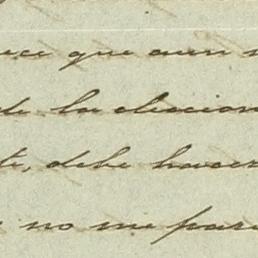 que aun
de la eleccion
te, debe hacer
no me pare